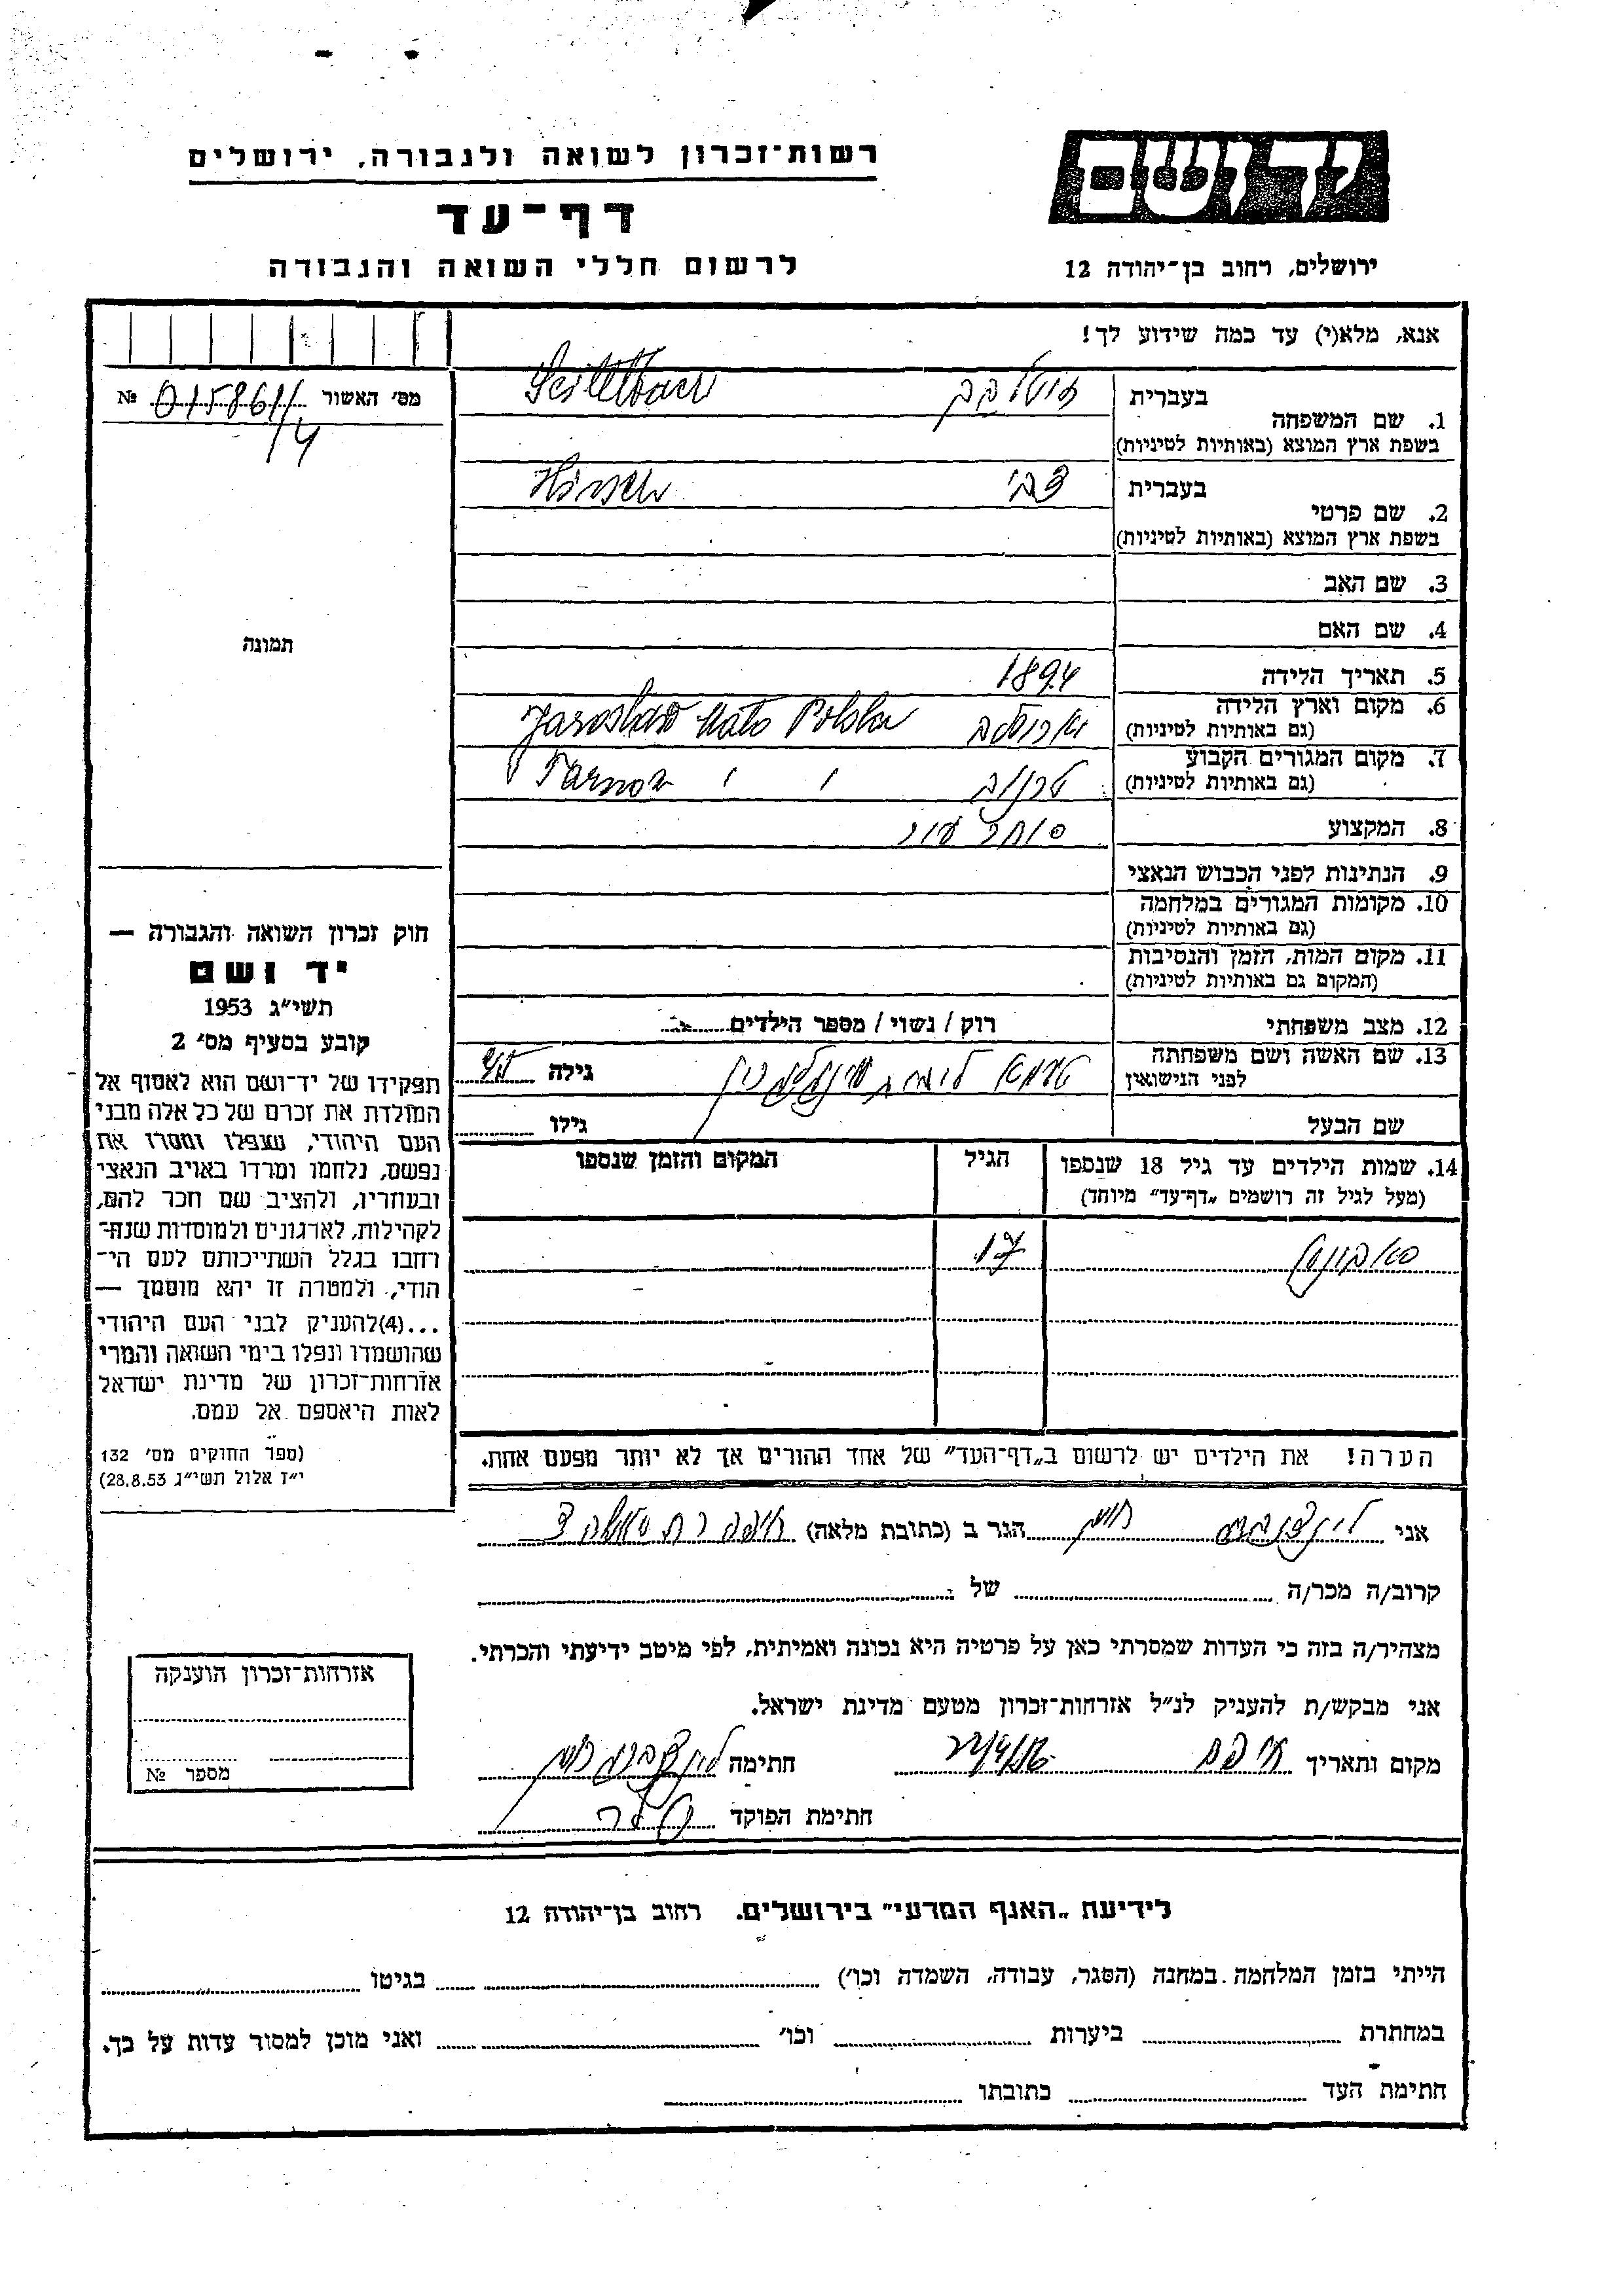 רשות־זכרון לשואה ולגבורה, ירושלים
דף־עד
לרשום חללי השואה והגבורה
ידושם
ירושלים, רחוב בן־יהודה 12
אנא, מלא(י) עד כמה שידוע לך!
מס׳ האשור № 015861/
4
תמונה
1. שם המשפחה
בעברית
בשפת ארץ המוצא (באותיות לטיניות)
2. שם פרטי
בעברית צבי Hirsch
בשפת ארץ המוצא (באותיות לטיניות)
3. שם האב
4. שם האם
5. תאריך הלידה 1894
6. מקום וארץ הלידה
(גם באותיות לטיניות) Jaroslaw Mało Polska
7. מקום המגורים הקבוע
(גם באותיות לטיניות) טרנוב Tarnow
8. המקצוע סוחר עור
9. הנתינות לפני הכבוש הנאצי
10. מקומות המגורים במלחמה
(גם באותיות לטיניות)
11. מקום המות, הזמן והנסיבות
(המקום גם באותיות לטיניות)
12. מצב משפחתי רוק / נשוי / מספר הילדים
13. שם האשה ושם משפחתה
לפני הנישואין
גילה
שם הבעל גילו
14. שמות הילדים עד גיל 18 שנספו
(מעל לגיל זה רושמים „דף־עד״ מיוחד)
הגיל
המקום והזמן שנספו
17
הערה! את הילדים יש לרשום ב„דף־העד״ של אחד ההורים אך לא יותר מפעם אחת.
חוק זכרון השואה והגבורה —
יד ושם
תשי״ג 1953
קובע בסעיף מס׳ 2
תפקידו של יד־ושם הוא לאסוף אל
המולדת את זכרם של כל אלה מבני
העם היהודי, שנפלו ומסרו את
נפשם, נלחמו ומרדו באויב הנאצי
ובעוזריו, ולהציב שם וזכר להם,
לקהילות, לארגונים ולמוסדות שנח־
רחבו בגלל השתייכותם לעם הי־
הודי, ולמטרה זו יהא מוסמך —
...(4)להעניק לבני העם היהודי
שהושמדו ונפלו בימי השואה והמרי
אזרחות־זכרון של מדינת ישראל
לאות היאספם אל עמם.
(ספר החוקים מס׳ 132
י״ז אלול תשי״ג 28.8.53)
אני הגר ב (כתובת מלאה)
קרוב/ה מכר/ה של
מצהיר/ה בזה כי העדות שמסרתי כאן על פרטיה היא נכונה ואמיתית, לפי מיטב ידיעתי והכרתי.
אני מבקש/ת להעניק לנ״ל אזרחות־זכרון מטעם מדינת ישראל.
מקום ותאריך חיפה חתימה
חתימת הפוקד
אזרחות־זכרון הוענקה
מספר №
לידיעת „האגף המדעי״ בירושלים. רחוב בן־יהודה 12
הייתי בזמן המלחמה במחנה (הסגר, עבודה, השמדה וכו׳) בגיטו
במחתרת ביערות וכו׳ ואני מוכן למסור עדות על כך.
חתימת העד כתובתו